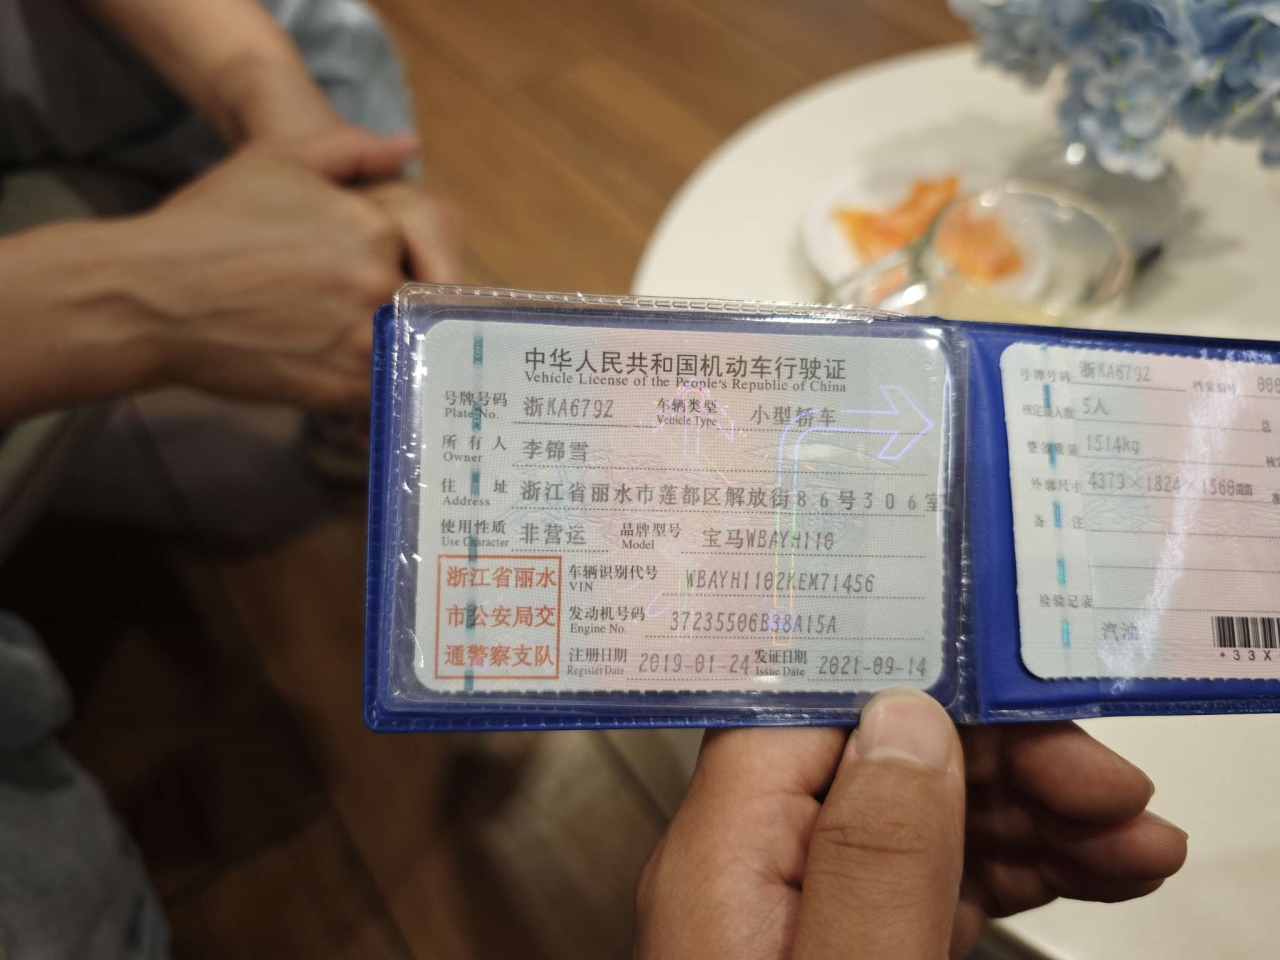 中华人民共和国机动车行驶证
Vehicle License of the People's Republic of China
号牌号码 浙KA679Z 车辆类型 小型轿车
Plate No. Vehicle Type
所有人 李锦雪
Owner
住址 浙江省丽水市莲都区解放街86号306室
Address
使用性质 非营运 品牌型号 宝马WBAYH110
Use Character Model
浙江省丽水
市公安局交
通警察支队
车辆识别代号 WBAYH1102KEM71456
VIN
发动机号码 37235506B38A15A
Engine No.
注册日期 2019-01-24 发证日期 2021-09-14
Register Date Issue Date
号牌号码 浙KA679Z 档案编号
核定载人数 5人 总
整备质量 1514kg 核定
外廓尺寸 4379×1824×1560mm
备注
检验记录
汽油
*33X